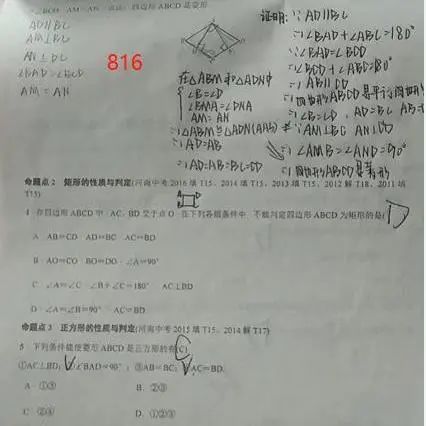 AD∥BC
AM⊥BC
AN⊥DC
∠BAD=∠BCD
AM=AN
816
证明:∵AD∥BC
∴∠BAD+∠ABC=180°
∵∠BAD=∠BCD
∴∠BCD+∠ABC=180°
∴AB∥CD
∴四边形ABCD是平行四边形
∴∠B=∠D
∵AM⊥BC AN⊥CD
∴∠AMB=∠AND=90°
在△ABM和△ADN中
∠B=∠D
∠BMA=∠DNA
AM=AN
∴△ABM≌△ADN(AAS)
∴AD=AB
∴AD=AB=BC=CD
∴四边形ABCD是菱形
命题点2 矩形的性质与判定(河南中考2016填T15、2014填T15、2013填T15、2012解T18、2011填
T15)
4 在四边形ABCD中,AC、BD交于点O,在下列各组条件中,不能判定四边形ABCD为矩形的是( D
A AB=CD AD=BC AC=BD
B AO=CO BO=DO ∠A=90°
C ∠A=∠C ∠B+∠C=180° AC⊥BD
D ∠A=∠B=90° AC=BD
命题点3 正方形的性质与判定(河南中考2015填T15、2014解T17)
5 下列条件能使菱形ABCD是正方形的有(C)
①AC⊥BD;②∠BAD=90°;③AB=BC;④AC=BD.
A ①③ B. ②③
C ②④ D. ①②③